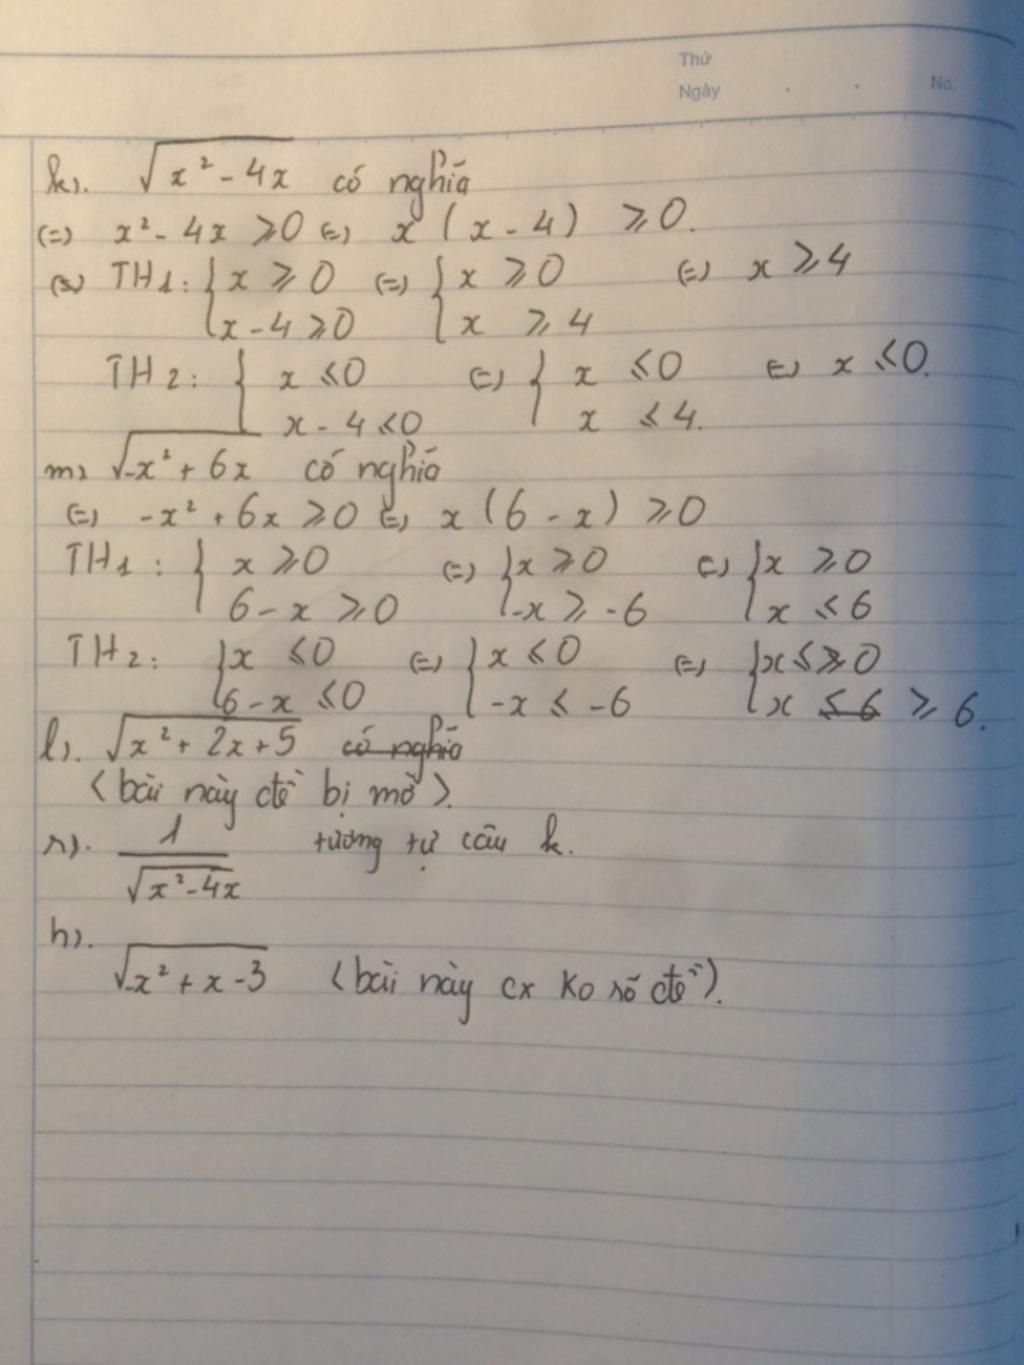 Thứ
Ngày . . No.
k). √(x² - 4x) có nghĩa
(=) x² - 4x ⩾ 0 (=) x (x - 4) ⩾ 0.
(=) TH1: { x ⩾ 0 (=) { x ⩾ 0 (=) x ⩾ 4
x - 4 ⩾ 0 x ⩾ 4
TH2: { x ⩽ 0 (=) { x ⩽ 0 (=) x ⩽ 0.
x - 4 ⩽ 0 x ⩽ 4.
m) √(-x² + 6x) có nghĩa
(=) -x² + 6x ⩾ 0 (=) x (6 - x) ⩾ 0
TH1: { x ⩾ 0 (=) { x ⩾ 0 (=) { x ⩾ 0
6 - x ⩾ 0 -x ⩾ -6 x ⩽ 6
TH2: { x ⩽ 0 (=) { x ⩽ 0 (=) { x ⩽ ⩾ 0
6 - x ⩽ 0 -x ⩽ -6 x ⩽ 6 ⩾ 6.
l). √(x² + 2x + 5) có nghĩa
(bài này đề bị mờ).
n). 1/√(x² - 4x) tương tự câu k.
h).
√(-x² + x - 3) (bài này cx ko rõ đề).